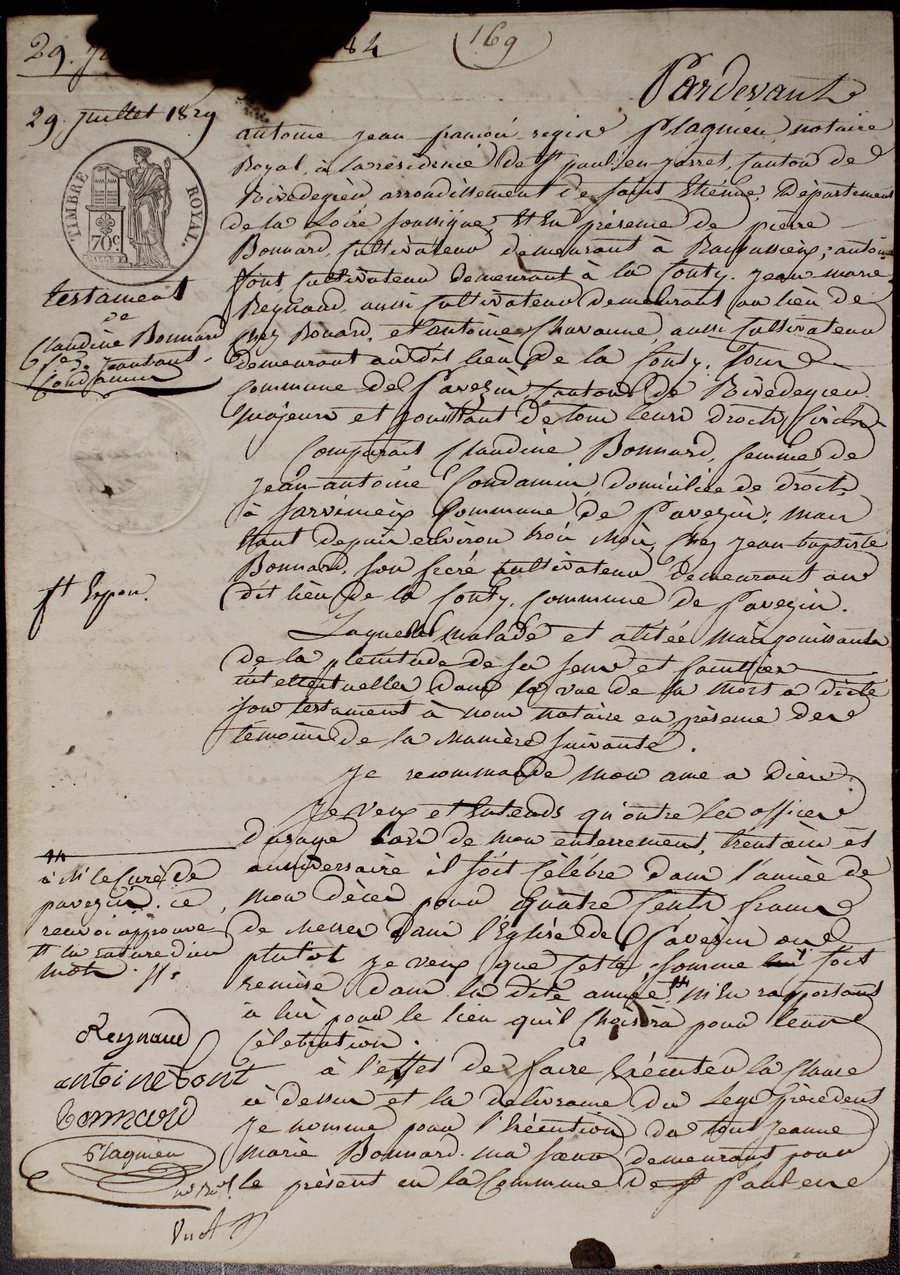 29. Ju 184
(169)
Pardevant
29. juillet 1829
antoine jean françois regis Plagnieu, notaire
Royal, à la résidence de St paul-en-jarret, Canton de
Rivedegier, arrondissement de Saint Etienne, Département
de la Loire soussigné, Et En présence de pierre
Bonnard, Cultivateur demeurant à antoine
font, Cultivateur demeurant à la Conty, jean marie
Reynaud, aussi Cultivateur demeurant au lieu de
Chez Bonard, et antoine Chavanne, aussi Cultivateur
demeurant au dit lieu de la Conty. Tous
Commune de Pavezin, Canton de Rivedegier
majeurs et jouissant de tous leurs droits Civils
TIMBRE ROYAL.
70c
testament
de
Claudine Bonnard
Condamin
Comparait Claudine Bonnard, femme de
jean-antoine Condamin, domiciliée de droit
à Commune de Pavezin, mais
étant depuis environ trois mois, Chez jean-baptiste
Bonnard, son frère Cultivateur demeurant au
dit lieu de la Conty, Commune de Pavezin.
Laquelle malade et alitée mais jouissante
de la plenitude de ses sens et facultés
intellectuelles dans la vue de la mort a dicté
son testament à nous notaire en présence des
témoins de la manière suivante.
je recommande mon ame a Dieu
je veux et entends qu'outre les offices
d'usage lors de mon enterrement, trentain et
anniversaire il soit célébré dans l'année de
mon décès pour quatre Cents francs
de messes dans l'Eglise de Pavezin ou
plutot je veux que cette somme soit
remise dans la dite année # m'en rapportant
à lui pour le lieu qu'il choisira pour leur
Célébration.
# à Mr le Curé de
pavezin. ce
renvoi approuvé
et la rature d'un
mot. #.
à l'effet de faire Exécuter la Clause
ci dessus et la délivrance du Legs précédent
je nomme pour l'Exécution du tout jeanne
marie Bonnard ma sœur demeurant pour
le présent en la Commune de St Paul en
Reynaud
antoine font
Bonnard
Plagnieu